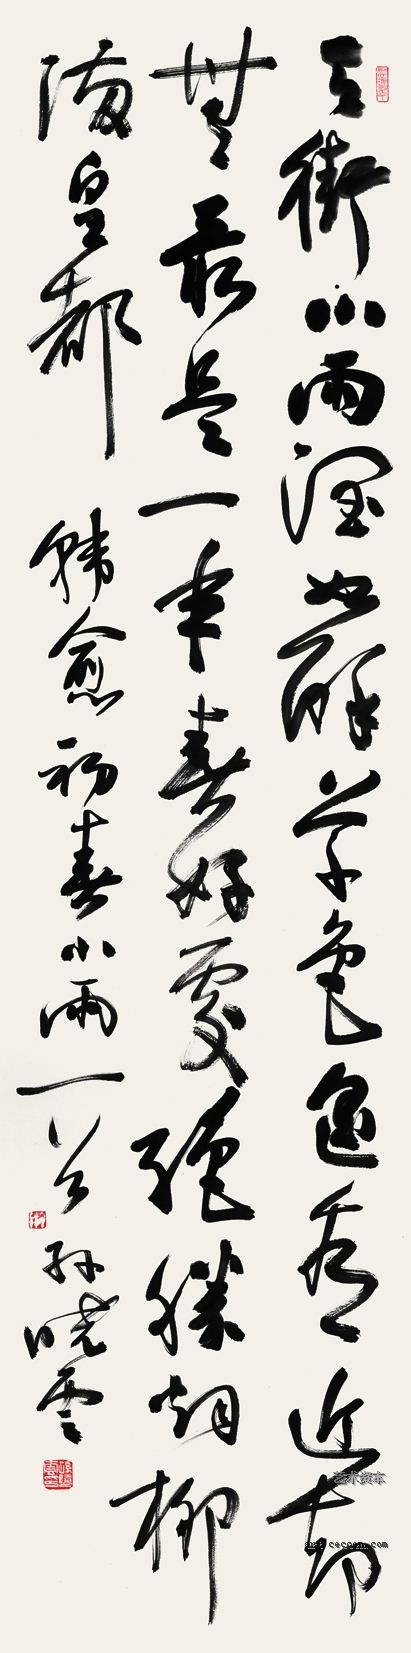 天街小雨潤如酥草色遥看近却
無最是一年春好處絕勝烟柳
滿皇都
韓愈初春小雨一首
孫曉雲
艺术资本